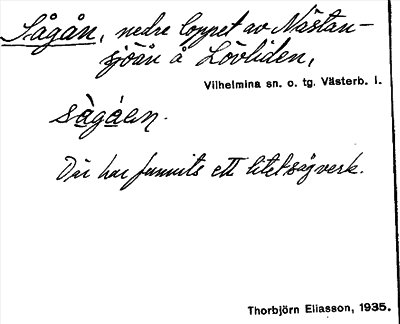 Sågån, nedre loppet av Nästan-
sjöån å Lövliden,
Vilhelmina sn. o. tg. Västerb. l.
sågåen.
Där har funnits ett litet sågverk.
Thorbjörn Eliasson, 1935.